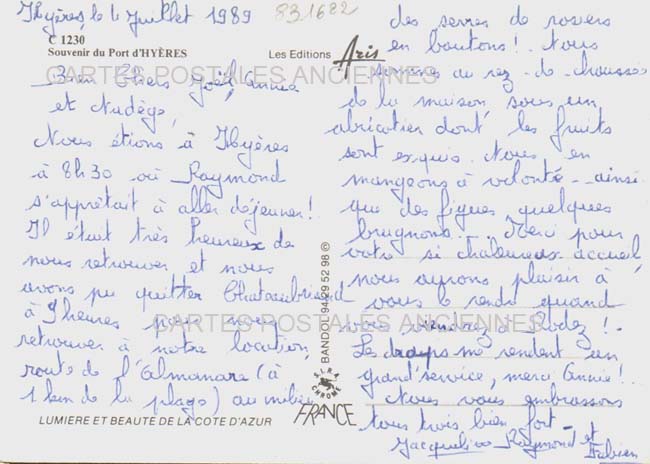 Hyères le 4 Juillet 1989
831682
C 1230
Souvenir du Port d'HYÈRES
Les Editions Aris
CARTES POSTALES ANCIENNES
Bien Chers Joël, Annie
et Nadège,
Nous étions à Hyères
à 8h30 où Raymond
s'apprêtait à aller déjeuner!
Il était très heureux de
nous retrouver et nous
avons pu quitter Chateaubriand
à 9 heures pour nous
retrouver à notre location,
route de l'Almanarre (à
1 km de la plage) au milieu
LUMIERE ET BEAUTÉ DE LA COTE D'AZUR
BANDOL 94 29 52 98 ©
S.I.R.A. CHROME
FRANCE
des serres de rosiers
en boutons! Nous
sommes au rez-de-chaussée
de la maison, sous un
abricotier dont les fruits
sont exquis. Nous en
mangeons à volonté - ainsi
que des figues, quelques
brugnons... Merci pour
votre si chaleureux accueil,
nous aurons plaisir à
CARTES POSTALES ANCIENNES
vous le rendre quand
vous viendrez à Rodez!-
Les draps me rendent un
grand service, merci Annie!
Nous vous embrassons
tous trois bien fort -
Jacqueline Raymond et
Fabien